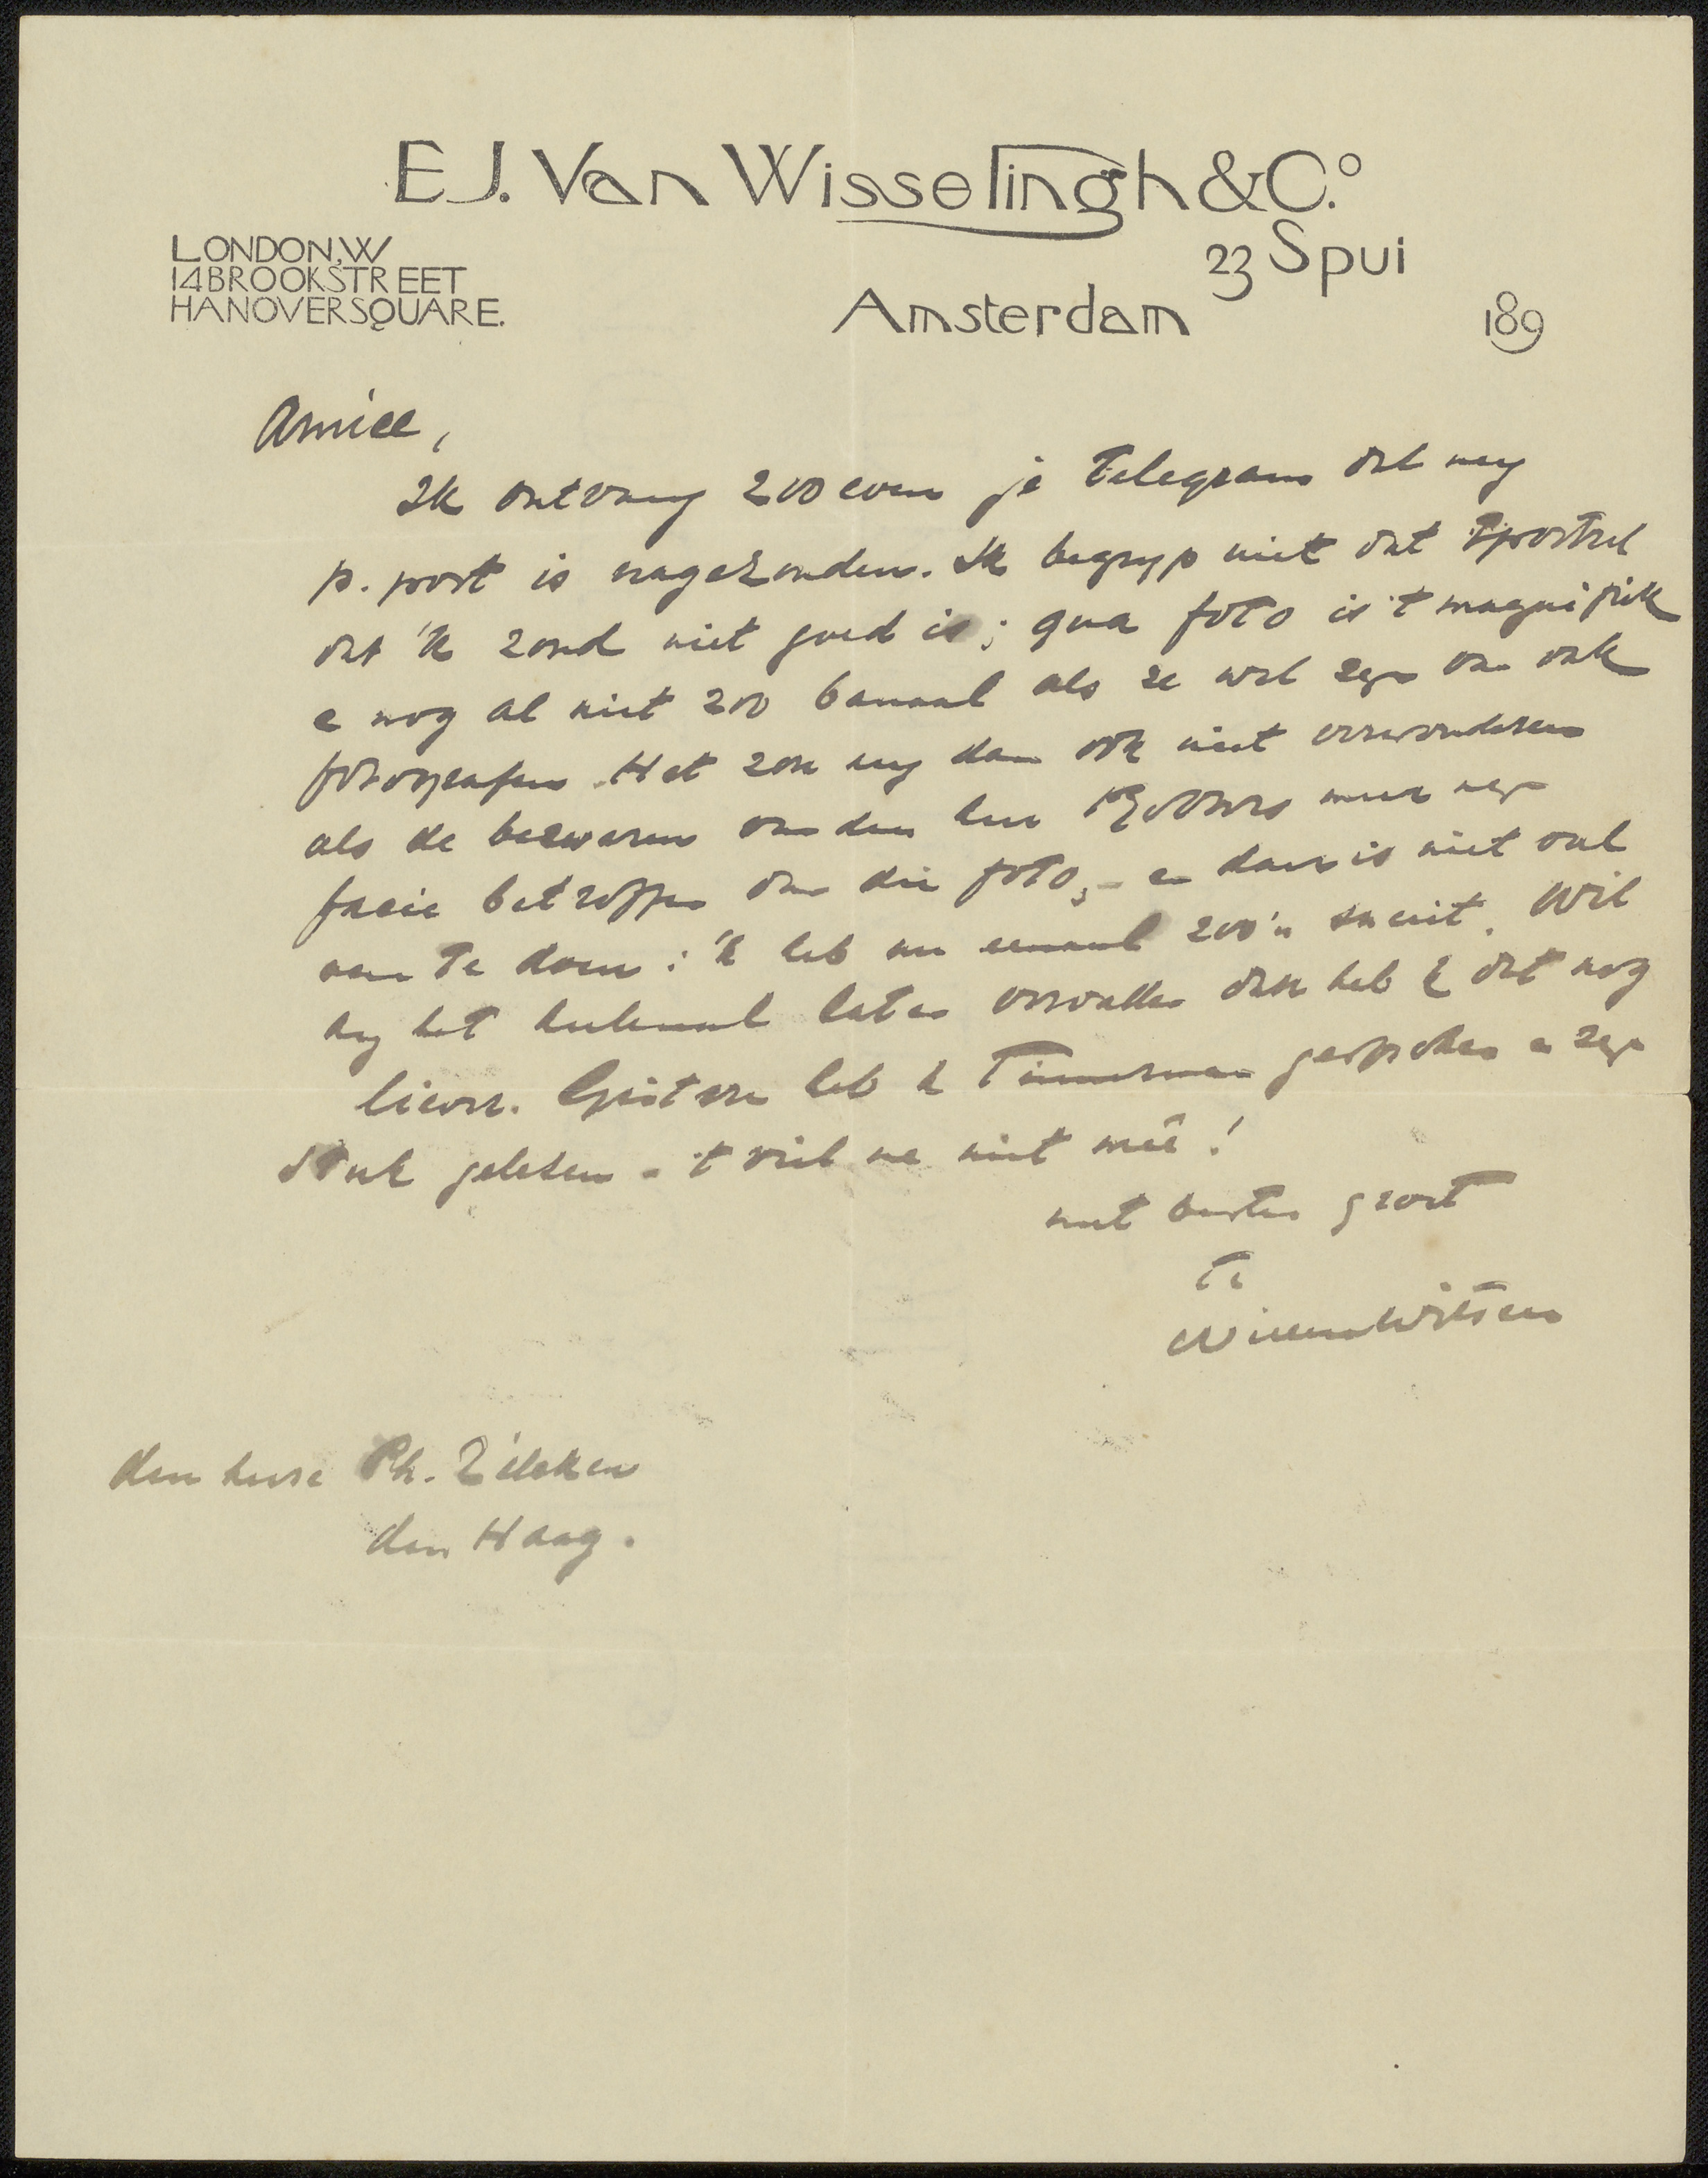 E.J. Van Wisselingh & Co.
LONDON, W
14 BROOKSTREET
HANOVERSQUARE.
23 Spui
Amsterdam 189
Amice,
Ik ontvang zooeven je telegram dat my
p. post is nagezonden. Ik begryp niet dat 't portret
dat 'k zond niet goed is; qua foto is 't magnifiek
e nog al niet zoo banaal als ze wel zegn van vak
fotografen. Het zou my dan ook niet verwonderen
als de bezwaren van den heer meer myn
facie betroffen dan die foto, - e daar is niet veel
aan te doen: 'k heb nu eenmaal zoo'n snuit. Wil
hy het heelemaal laten vervallen dan heb 'k dat nog
liever. Gisteren heb 'k Timmerman gesproken e zyn
stuk gelezen - 't viel me niet meê!
met besten groet
Tt
Willem Witsen
den heere Ph. Zilcken
den Haag.